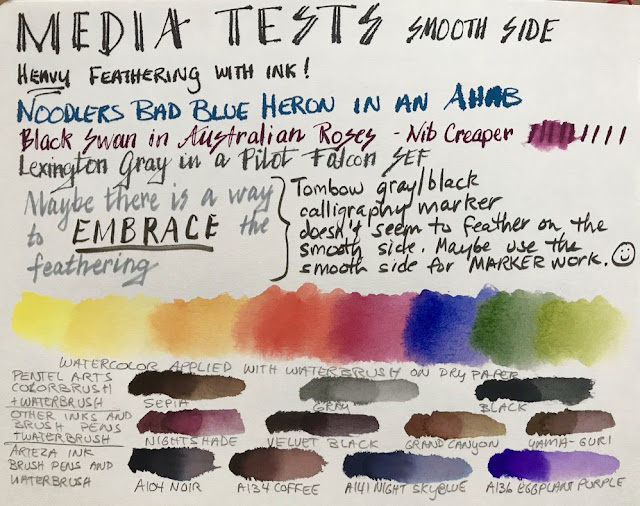 MEDIA TESTS SMOOTH SIDE
HEAVY FEATHERING WITH INK!
NOODLERS BAD BLUE HERON IN AN AHAB
Black Swan in Australian Roses - Nib Creaper
Lexington Gray in a Pilot Falcon SEF
Maybe there is a way
to EMBRACE the
feathering
Tombow gray/black
calligraphy marker
doesn't seem to feather on the
smooth side. Maybe use the
smooth side for MARKER WORK.
WATERCOLOR APPLIED WITH WATERBRUSH ON DRY PAPER
PENTEL ARTS
COLORBRUSH
+WATERBRUSH
SEPIA GRAY BLACK
OTHER INKS AND
BRUSH PENS
+WATERBRUSH
NIGHTSHADE VELVET BLACK GRAND CANYON YAMA-GURI
ARTEZA INK
BRUSH PENS AND
WATERBRUSH
A104 NOIR A134 COFFEE A141 NIGHT SKY BLUE A136 EGGPLANT PURPLE